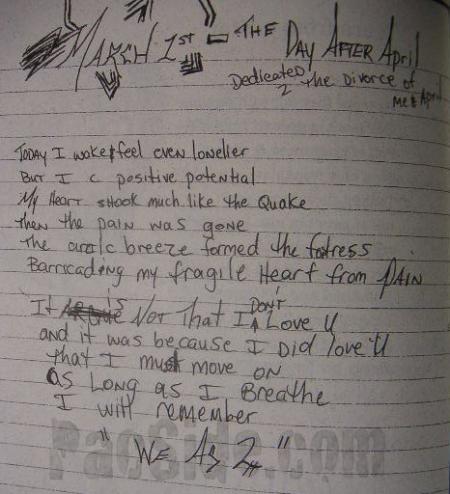 March 1st - The Day After April
Dedicated 2 the Divorce of
me & April
Today I woke & feel even lonelier
But I c positive potential
My Heart shook much like the Quake
then the pain was gone
the arctic breeze formed the fortress
Barricading my fragile Heart from PAIN
It is Not That I DON'T Love U
and it was because I did love U
that I must move on
as Long as I Breathe
I will remember
"WE AS 2"
PacSide.com